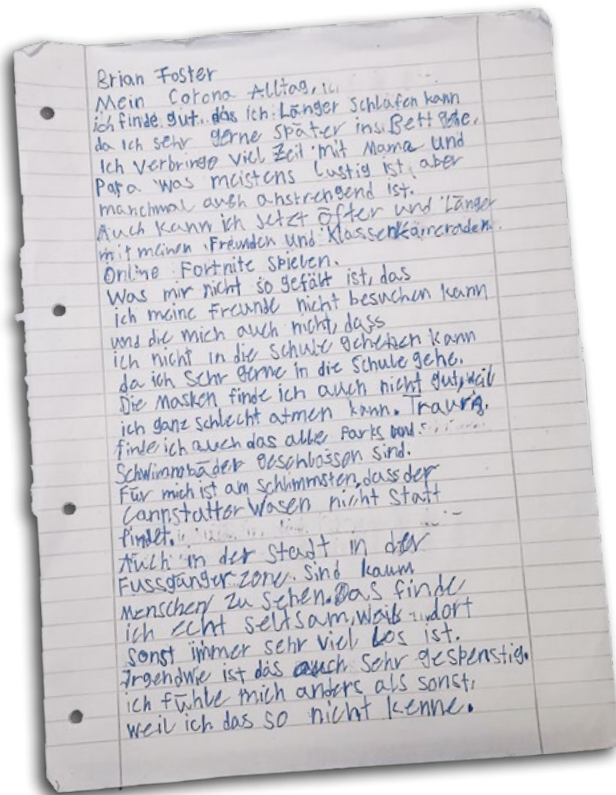 Brian Foster
Mein Corona Alltag,
ich finde gut, das ich Länger schlafen kann
da ich sehr gerne später ins Bett gehe.
Ich verbringe viel Zeit mit Mama und
Papa was meistens lustig ist, aber
manchmal auch anstrengend ist.
Auch kann ich jetzt öfter und Länger
mit meinen Freunden und Klassenkameraden
Online Fortnite spielen.
Was mir nicht so gefält ist, das
ich meine Freunde nicht besuchen kann
und die mich auch nicht, dass
ich nicht in die Schule gehen kann
da ich sehr gerne in die Schule gehe.
Die Masken finde ich auch nicht gut, weil
ich ganz schlecht atmen kann. Traurig
finde ich auch das alle Parks und
Schwimmbäder geschlossen sind.
Für mich ist am schlimmsten, dass der
Cannstatter Wasen nicht statt
findet.
Auch in der Stadt in der
Fussgänger zone sind kaum
Menschen zu sehen. Das finde
ich echt seltsam, weil dort
sonst immer sehr viel los ist.
Irgendwie ist das auch sehr gespenstig.
ich fühle mich anders als sonst,
weil ich das so nicht kenne.